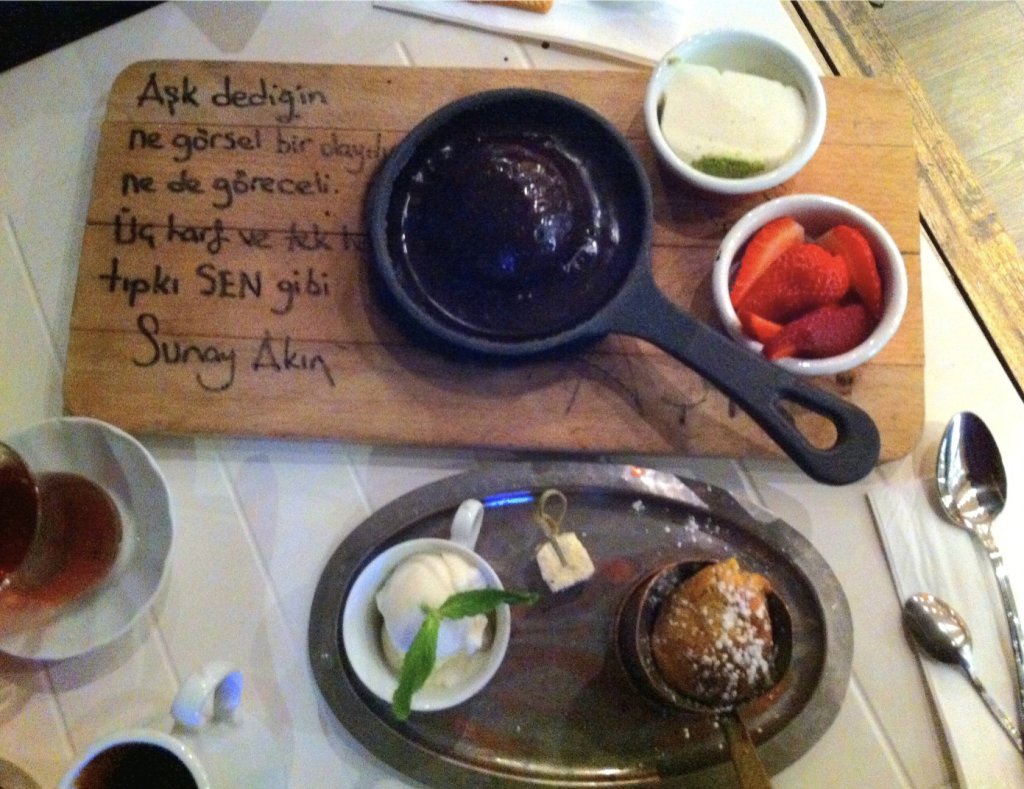 Aşk dediğin
ne görsel bir olaydır
ne de göreceli.
Üç harf ve tek
tıpkı SEN gibi
Sunay Akın